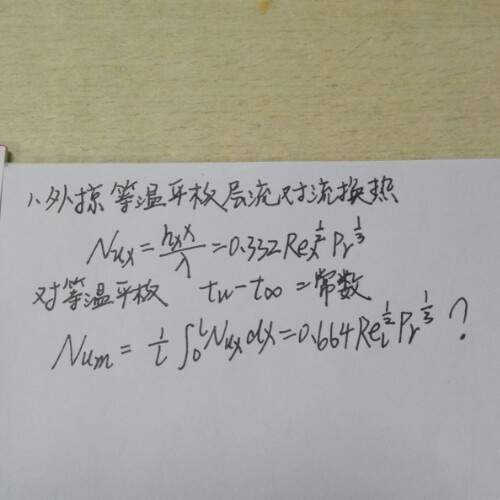 1、外掠等温平板层流对流换热
Nux = hxx/λ = 0.332Rex^1/2 Pr^1/3
对等温平板 tw-t∞ = 常数
Num = 1/L ∫0^L Nux dx = 0.664ReL^1/2 Pr^1/3 ?